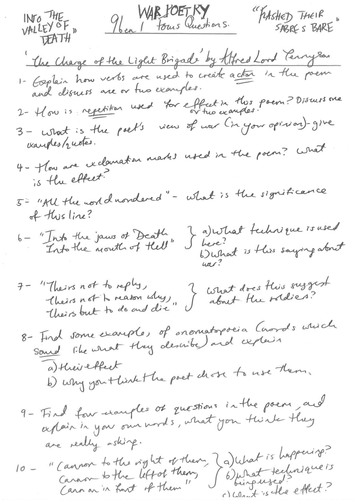 INTO THE
VALLEY OF
DEATH"
WAR POETRY
Focus Questions.
"FLASHED THEIR
SABRES BARE"
'The Charge of the Light Brigade' by Alfred Lord Tennyson
1- Explain how verbs are used to create action in the poem
and discuss one or two examples.
2- How is repetition used for effect in this poem? Discuss one
or two examples.
3- What is the poet's view of war (in your opinion) - give
examples/quotes.
4- How are exclamation marks used in the poem? What
is the effect?
5- "All the world wondered" - what is the significance
of this line?
6- "Into the jaws of Death
Into the mouth of Hell"
a) What technique is used
here?
b) What is this saying about
war?
7- "Theirs not to reply,
Theirs not to reason why,
Theirs but to do and die"
What does this suggest
about the soldiers?
8- Find some examples, of onomatopoeia (words which
sound like what they describe) and explain
a) their effect
b) why you think the poet chose to use them.
9- Find four examples of questions in the poem, and
explain in your own words, what you think they
are really asking.
10- "Cannon to the right of them,
Cannon to the left of them,
Cannon in front of them"
a) What is happening?
b) What technique is
being used?
c) What is the effect?